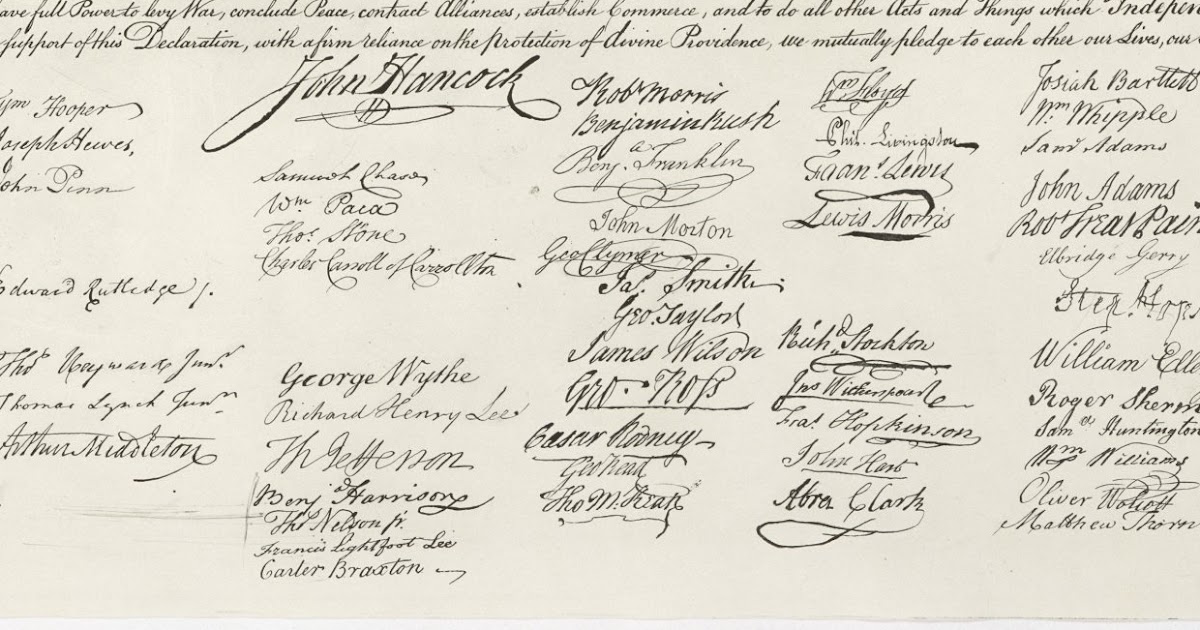 ave full Power to levy War, conclude Peace, contract Alliances, establish Commerce, and to do all other Acts and Things which Indepen
support of this Declaration, with a firm reliance on the protection of divine Providence, we mutually pledge to each other our Lives, our
Wm Hooper
Joseph Hewes,
John Penn
Edward Rutledge /.
Thos Heyward Junr.
Thomas Lynch Junr.
Arthur Middleton
John Hancock
Samuel Chase
Wm. Paca
Thos. Stone
Charles Carroll of Carrollton
George Wythe
Richard Henry Lee
Th Jefferson
Benja Harrison
Thos Nelson jr.
Francis Lightfoot Lee
Carter Braxton
Robt Morris
Benjamin Rush
Benja. Franklin
John Morton
Geo Clymer
Jas. Smith.
Geo. Taylor
James Wilson
Geo. Ross
Caesar Rodney
Geo Read
Tho M:Kean
Wm Floyd
Phil. Livingston
Frans. Lewis
Lewis Morris
Richd. Stockton
Jno Witherspoon
Fras. Hopkinson
John Hart
Abra Clark
Josiah Bartlett
Wm. Whipple
Saml Adams
John Adams
Robt Treat Pain
Elbridge Gerry
Step. Hop
William Elle
Roger Sherm
Samel Huntington
Wm Williams
Oliver Wolcott
Matthew Thorn